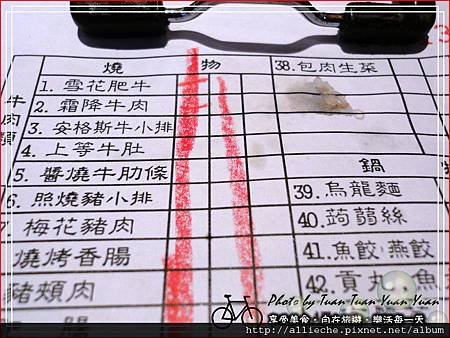 燒 物
牛肉類
1. 雪花肥牛
2. 霜降牛肉
3. 安格斯牛小排
4. 上等牛肚
5. 醬燒牛肋條
6. 照燒豬小排
7. 梅花豬肉
燒烤香腸
豬頰肉
腸
38. 包肉生菜
鍋 物
39. 烏龍麵
40. 蒟蒻絲
41. 魚餃·燕餃
42. 貢丸·魚
Photo by Tuan Tuan Yuan Yuan
享受美食·向在旅遊·樂活每一天
http://allieche.pixnet.net/album